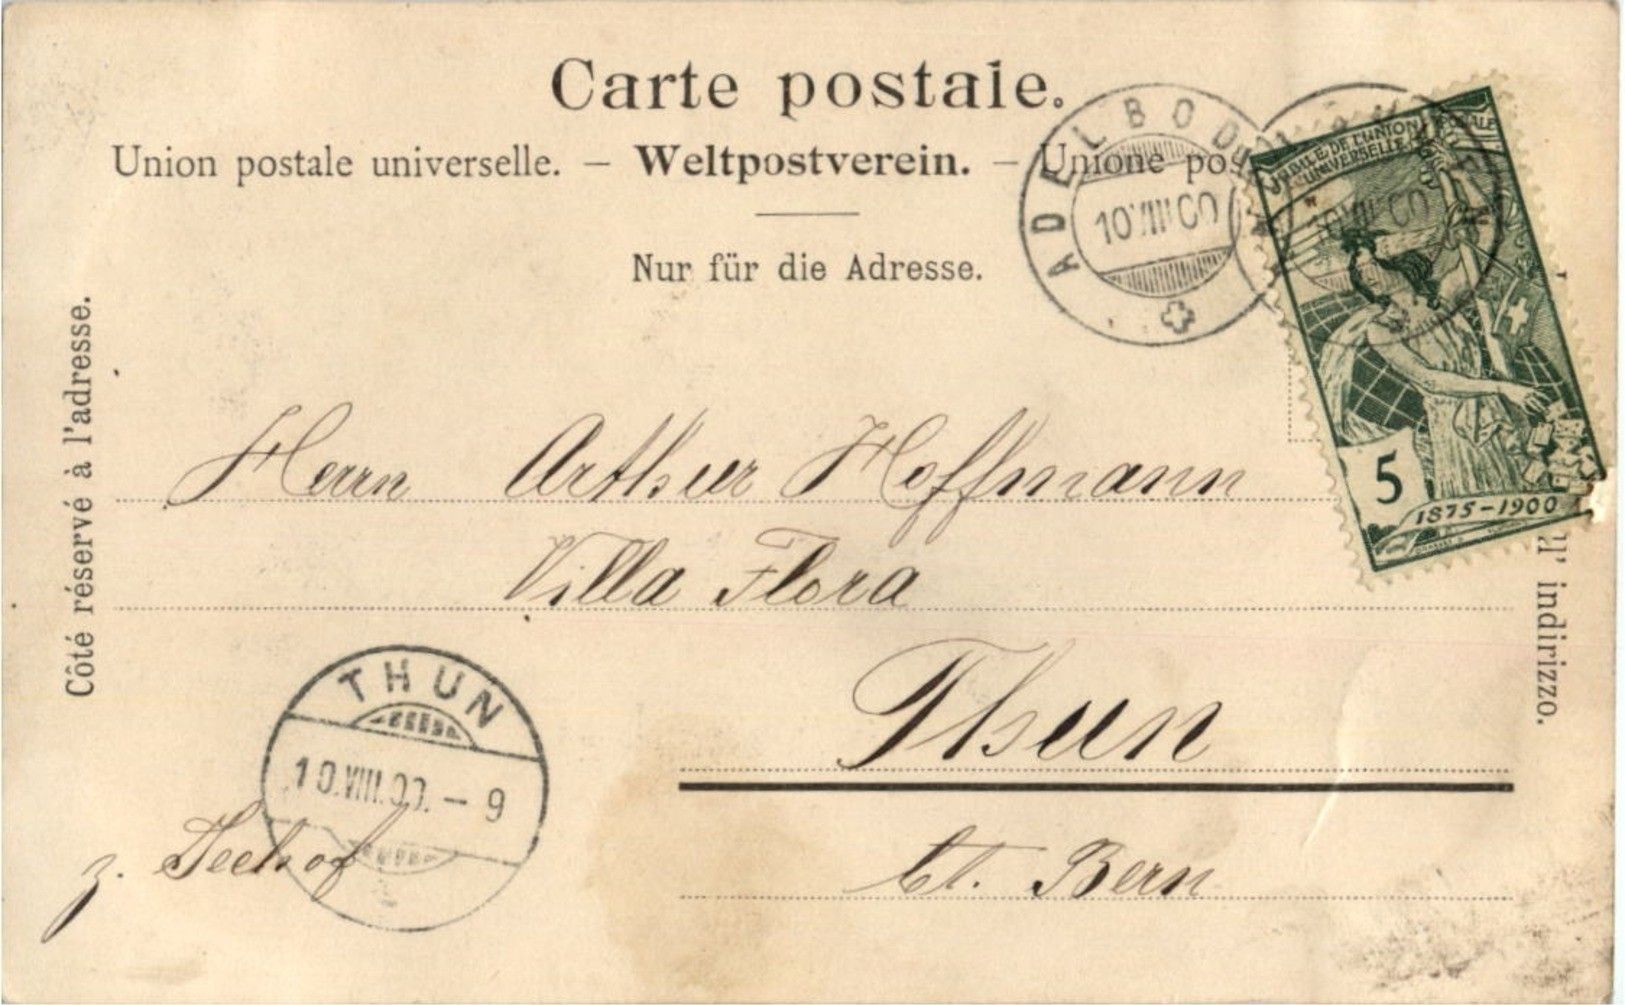 Carte postale.
Union postale universelle. – Weltpostverein. – Unione pos
Nur für die Adresse.
Côté réservé à l'adresse.
ll' indirizzo.
ADELBODEN
10.VIII.00
JUBILÉ DE L'UNION POSTALE
UNIVERSELLE
5
1875-1900
Herrn Arthur Hoffmann
Villa Flora
Thun
Ct. Bern
THUN
10.VIII.00.-9
z. Seehof